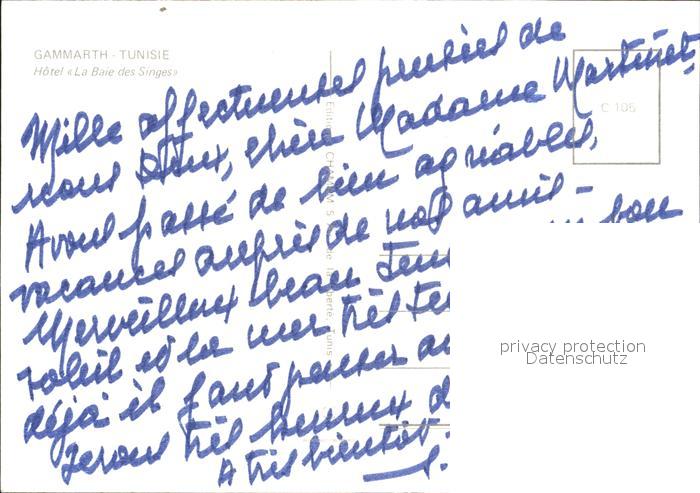 GAMMARTH - TUNISIE
Hôtel «La Baie des Singes»
C 105
Mille affectueuses pensées de
nous deux, chère Madame Martinet.
Avons passé de bien agréables
vacances auprès de nos amis -
Merveilleux beau
bon
soleil et la mer très
déjà il faut penser au
Serons très heureux d
A très bientôt
privacy protection
Datenschutz